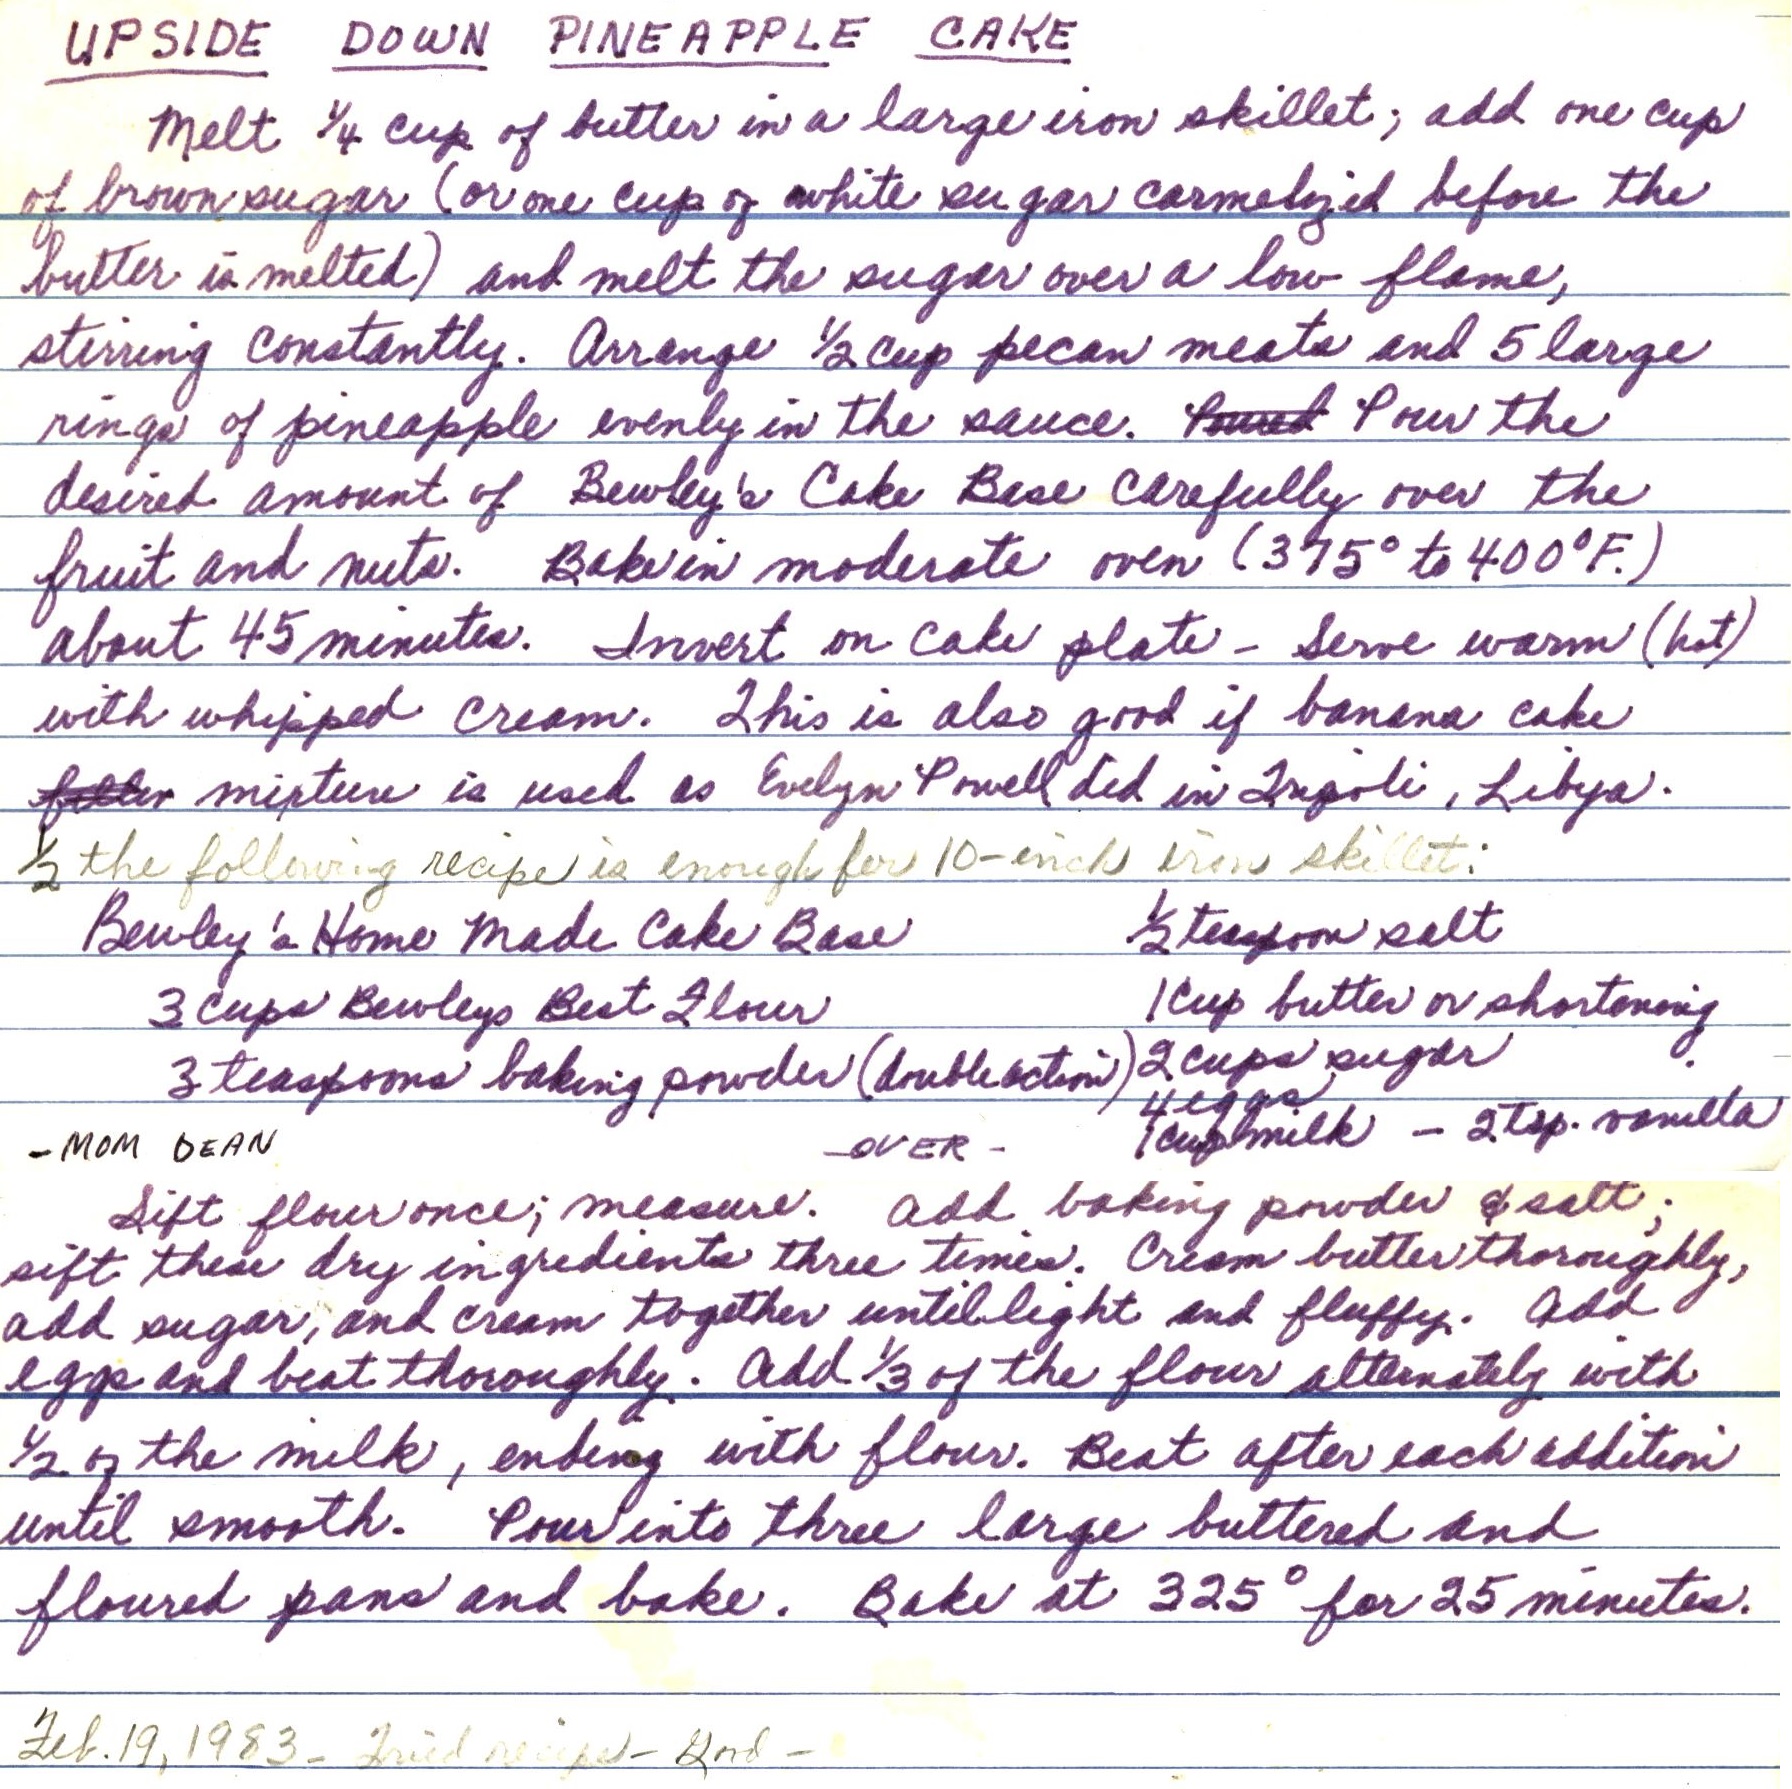 UPSIDE DOWN PINEAPPLE CAKE
Melt 1/4 cup of butter in a large iron skillet; add one cup
of brown sugar (or one cup of white sugar carmelized before the
butter is melted) and melt the sugar over a low flame,
stirring constantly. Arrange 1/2 cup pecan meats and 5 large
rings of pineapple evenly in the sauce. Pour the
desired amount of Bewley's Cake Base carefully over the
fruit and nuts. Bake in moderate oven (375° to 400° F.)
about 45 minutes. Invert on cake plate - Serve warm (hot)
with whipped cream. This is also good if banana cake
mixture is used as Evelyn Powell did in Tripoli, Libya.
1/2 the following recipe is enough for 10-inch iron skillet:
Bewley's Home Made Cake Base 1/2 teaspoon salt
3 cups Bewleys Best Flour 1 cup butter or shortening
3 teaspoons baking powder (double action) 2 cups sugar
4 eggs
1 cup milk - 2 tsp. vanilla
-MOM DEAN -OVER-
Sift flour once; measure. Add baking powder & salt;
sift these dry ingredients three times. Cream butter thoroughly,
add sugar, and cream together until light and fluffy. Add
eggs and beat thoroughly. Add 1/3 of the flour alternately with
1/2 of the milk, ending with flour. Beat after each addition
until smooth. Pour into three large buttered and
floured pans and bake. Bake at 325° for 25 minutes.
Feb. 19, 1983 - Tried recipe - Good -